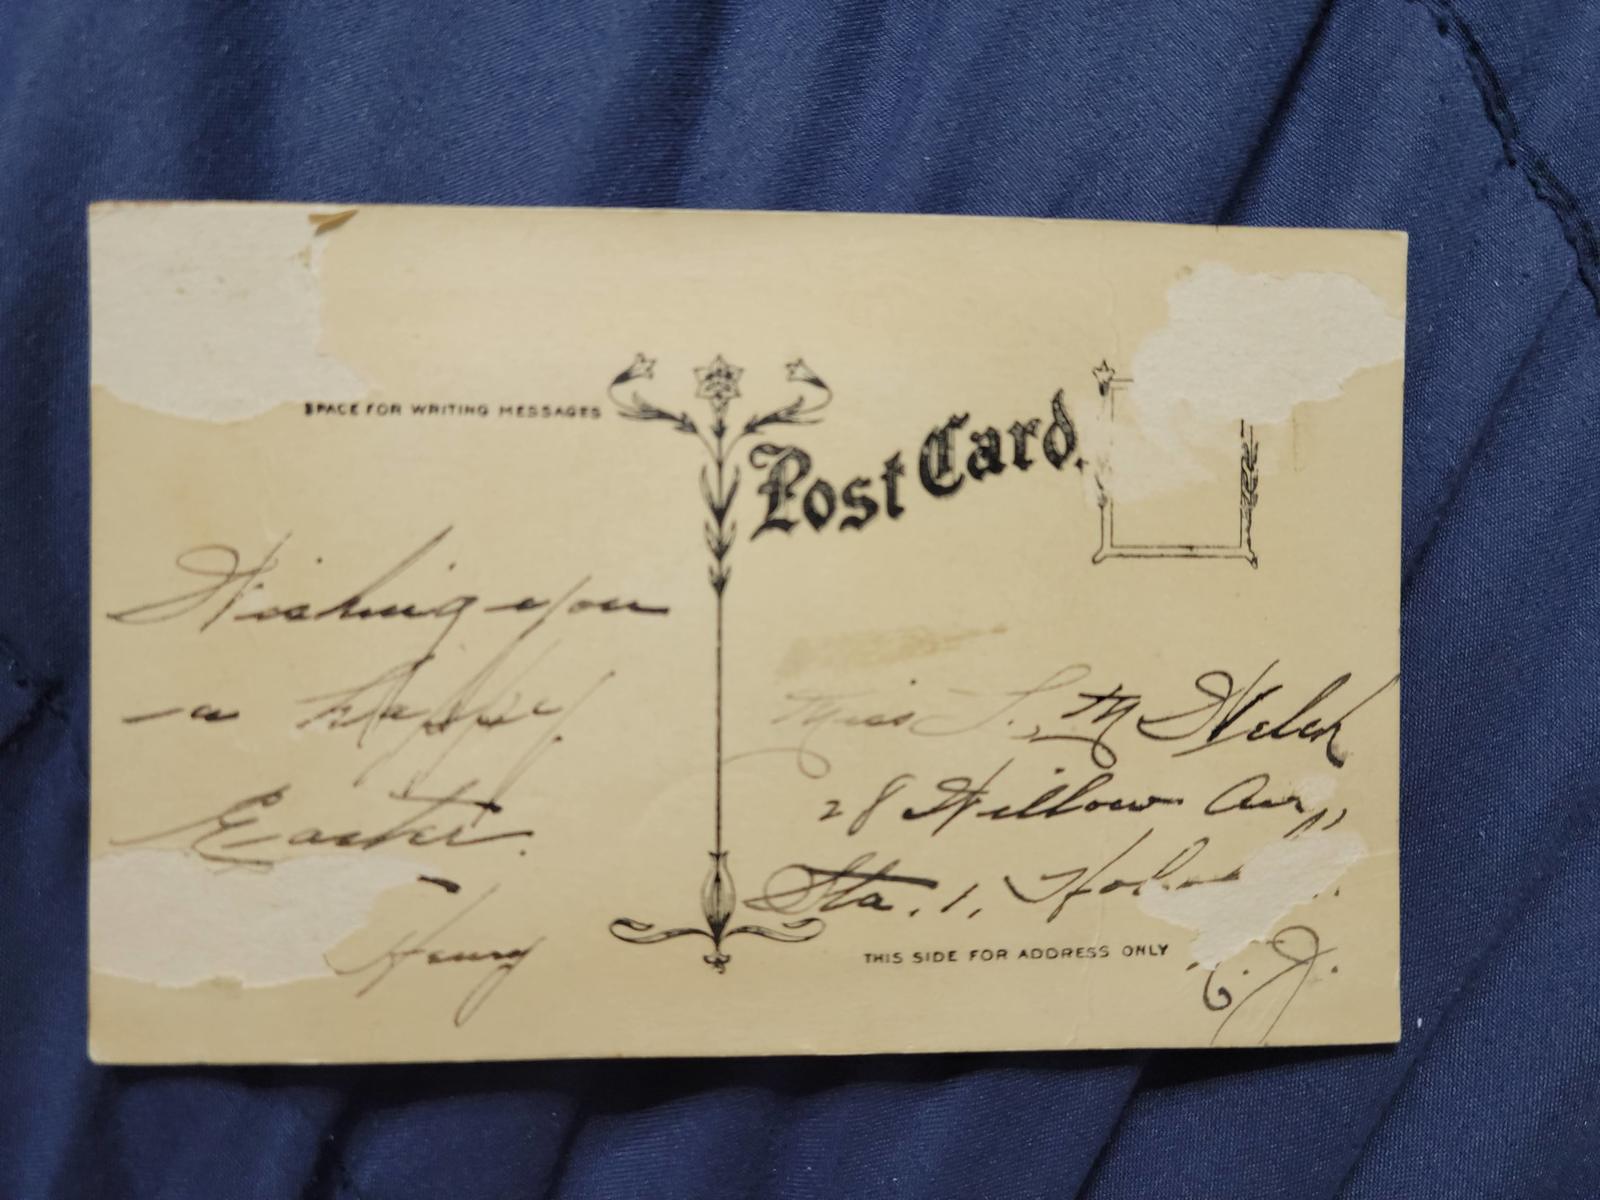 SPACE FOR WRITING MESSAGES
Post Card.
Wishing you
a happy
Easter.
Henry
Miss L. M Welch
28 Willow Av,
Sta. 1, Hobo
. J.
THIS SIDE FOR ADDRESS ONLY